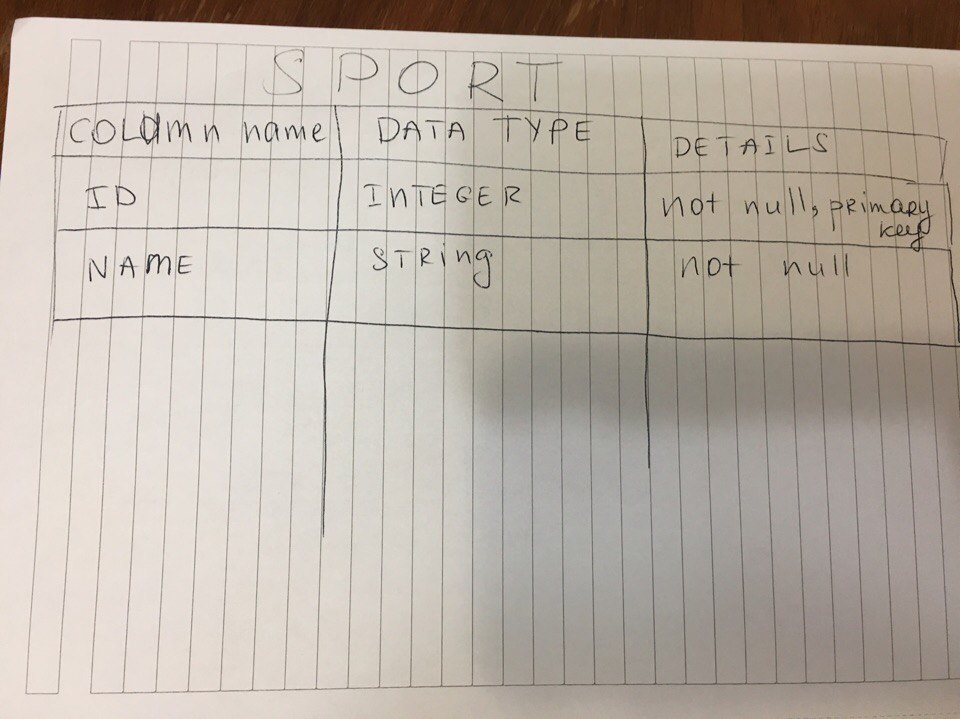 SPORT
COLUmn name DATA TYPE DETAILS
ID INTEGER not null, primary
key
NAME STRing not null